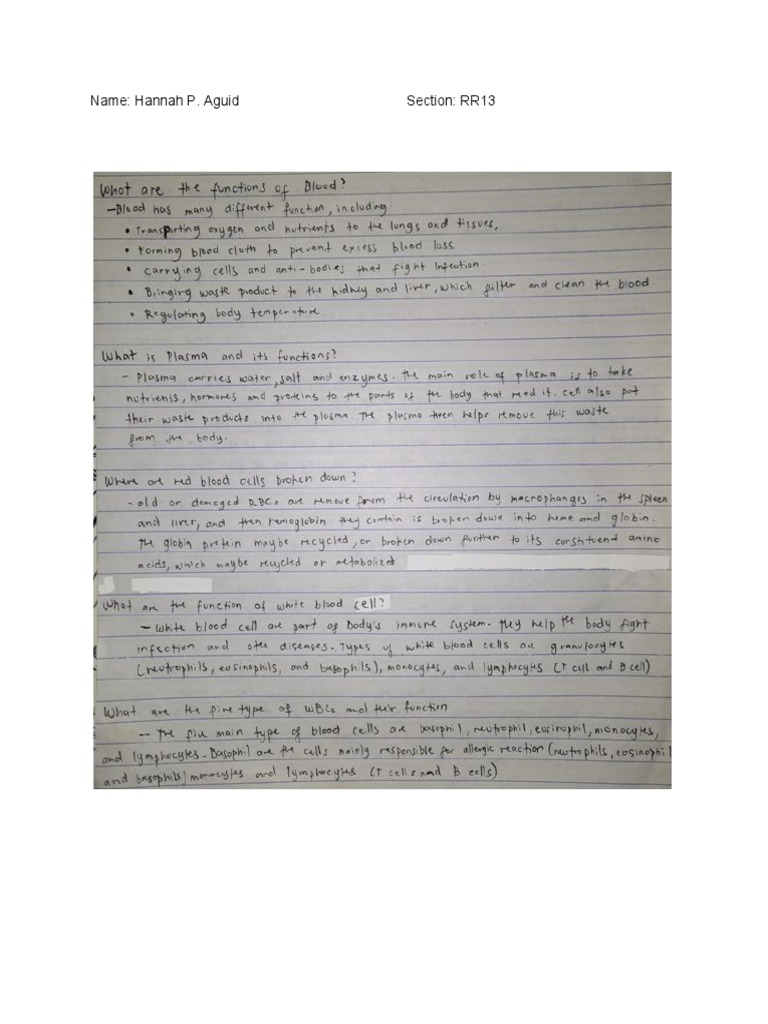 Name: Hannah P. Aguid Section: RR13
What are the functions of Blood?
-Blood has many different function, including:
• Transporting oxygen and nutrients to the lungs and tissues,
• Forming blood cloth to prevent excess blood loss.
• carrying cells and anti-bodies that fight infection.
• Bringing waste product to the kidney and liver, which filter and clean the blood.
• Regulating body temperature
What is Plasma and its functions?
- Plasma carries water, salt and enzymes. The main role of plasma is to take
nutrients, hormones and proteins to the parts of the body that need it. cell also put
their waste products into the plasma. The plasma then helps remove this waste
from the body.
Where are red blood cells broken down?
- old or damaged RBCs are remove from the circulation by macrophanges in the spleen
and liver, and then hemoglobin they contain is broken down into heme and globin.
The globin protein maybe recycled, or broken down further to its constituent amino
acids, which maybe recycled or metabolized
What are the function of white blood cell?
- White blood cell are part of Body's immune system. They help the body fight
infection and other diseases. Types of white blood cells are granulocytes
(neutrophils, eosinophils, and basophils), monocytes, and lymphocytes (T cells and B cell)
What are the five type of WBCs and their function
- The five main type of blood cells are basophil, neutrophil, eosinophil, monocytes,
and lymphocytes. Basophil are the cells mainly responsible for allergic reaction (neutrophils, eosinophil
and basophils) monocytes and lymphocytes (T cells and B cells)